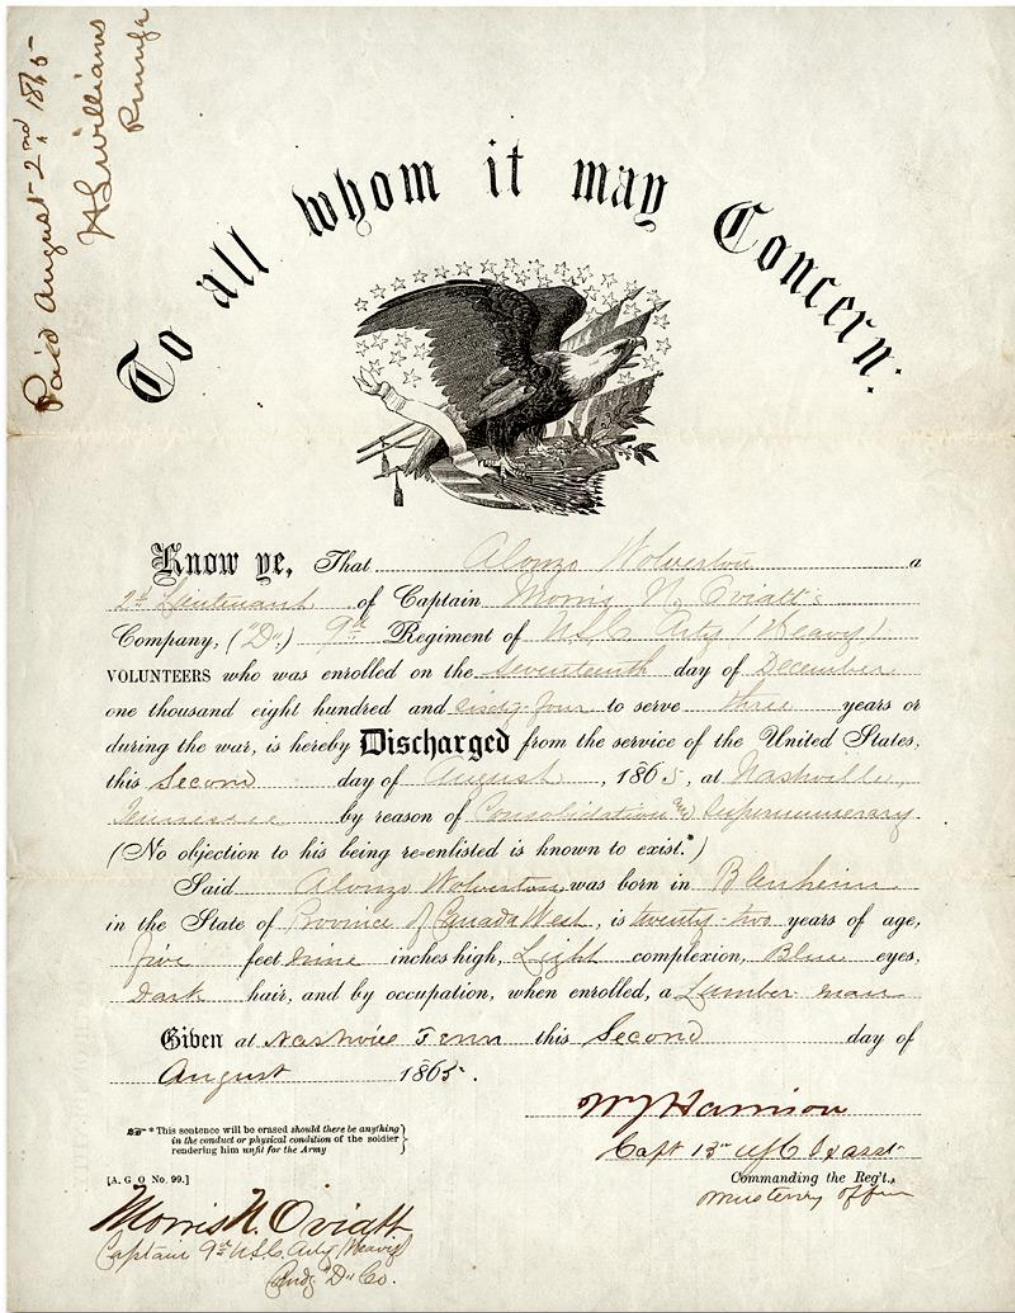 Paid August 2nd 1865
H S Williams
To all whom it may Concern:
Know ye, That Alonzo Wolverton a
2d Lieutenant of Captain Morris N. Oviatt's
Company, ("D") 9th Regiment of U.S.C. Arty (Heavy)
VOLUNTEERS who was enrolled on the Seventeenth day of December
one thousand eight hundred and sixty-four to serve three years or
during the war, is hereby Discharged from the service of the United States,
this Second day of August, 1865, at Nashville,
Tennessee by reason of Consolidation Supernumerary
(No objection to his being re-enlisted is known to exist.*)
Said Alonzo Wolverton was born in Blenheim
in the State of Province of Canada West, is twenty-two years of age,
five feet nine inches high, Light complexion, Blue eyes,
Dark hair, and by occupation, when enrolled, a Lumber man
Given at Nashville Tenn this Second day of
August 1865.
* This sentence will be erased should there be anything
in the conduct or physical condition of the soldier
rendering him unfit for the Army
[A. G. O No. 99.]
W J Harrison
Capt 13th
Commanding the Reg't.
Mustering Officer
Morris N. Oviatt
Captain 9th U.S.C. Arty Heavy
Comdg "D" Co.